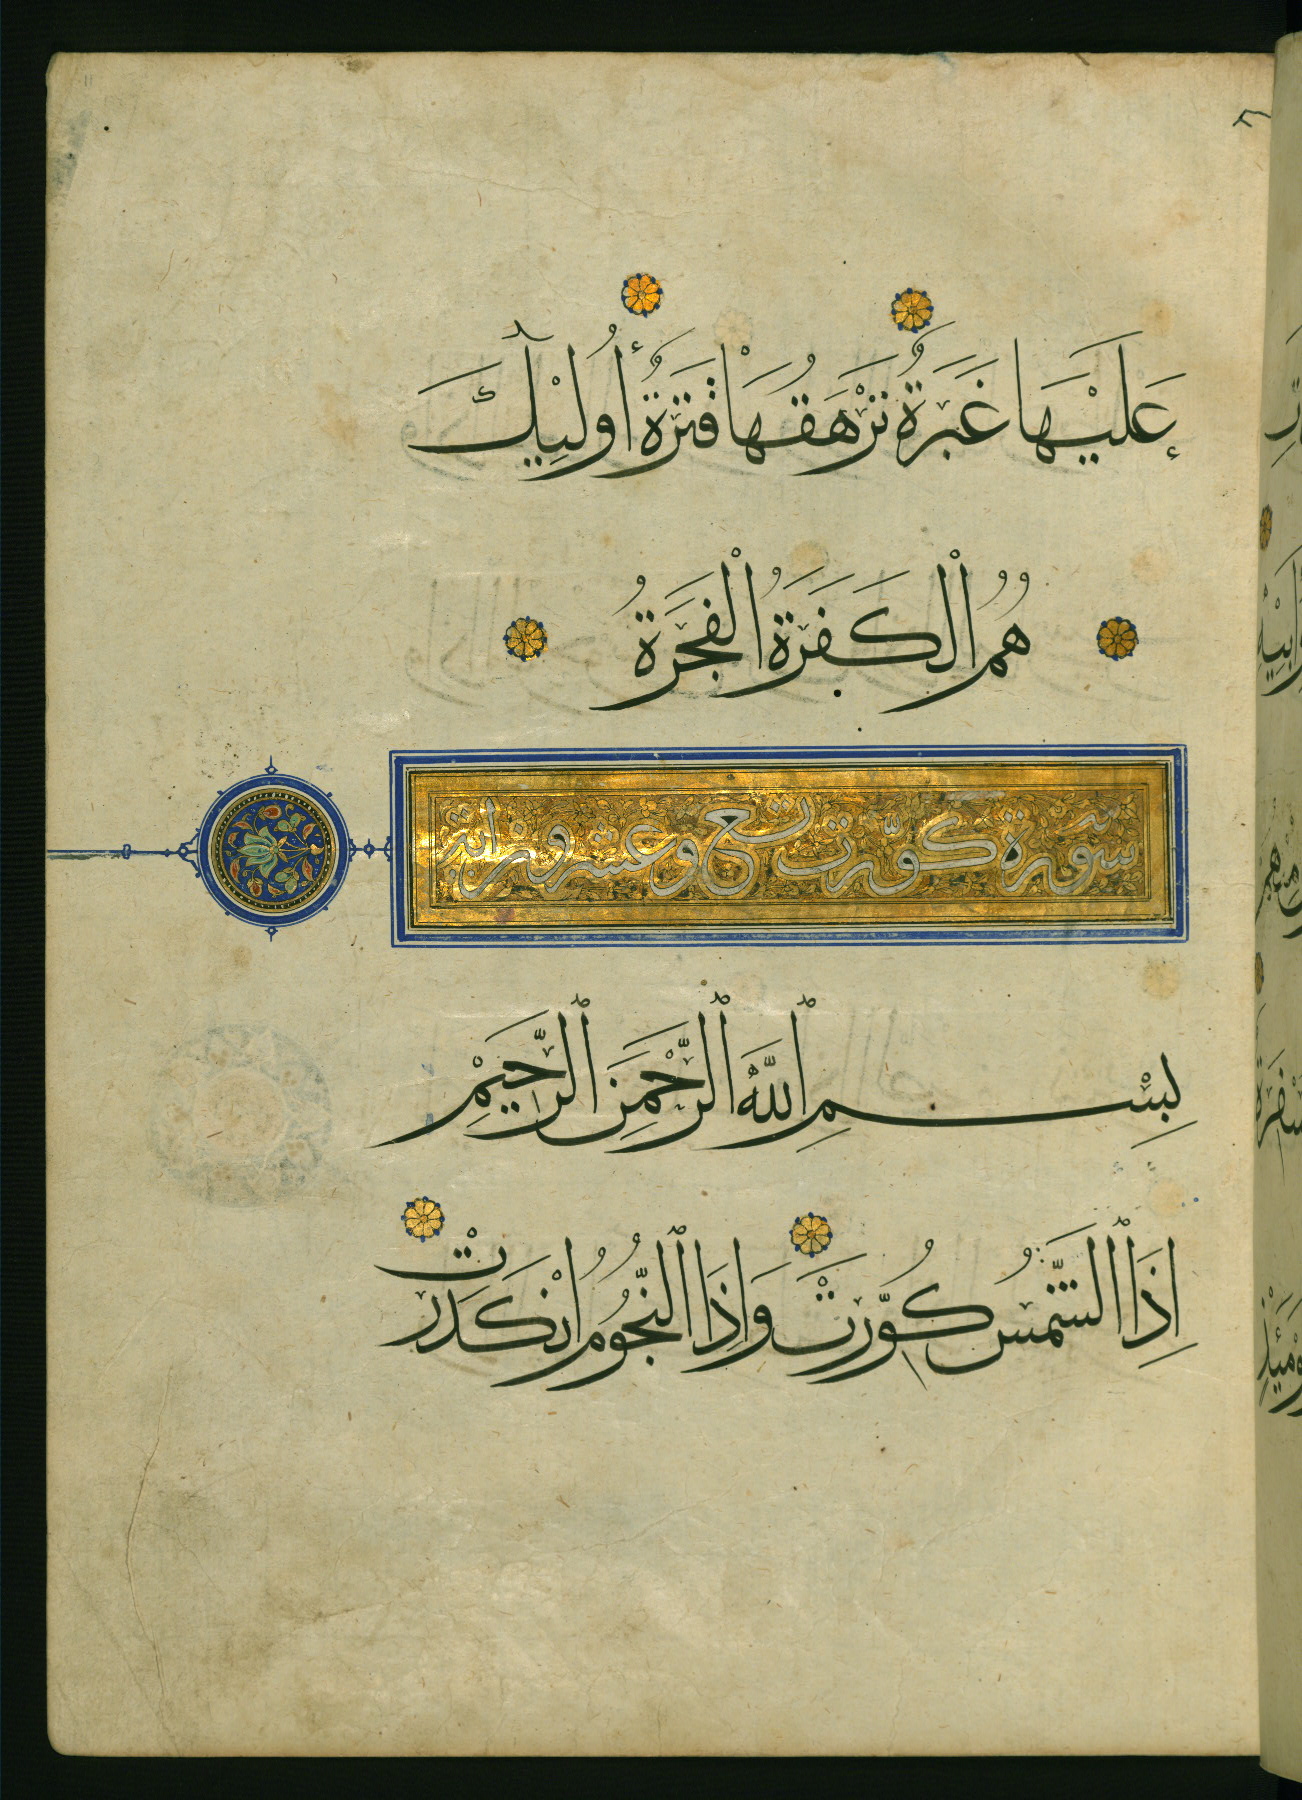 عَلَيْهَا غَبَرَةٌ تَرْهَقُهَا قَتَرَةٌ أُولَٰئِكَ
هُمُ الْكَفَرَةُ الْفَجَرَةُ
سورة كوّرت تسع وعشرون اية
بِسْمِ اللَّهِ الرَّحْمَنِ الرَّحِيمِ
اِذَا الشَّمْسُ كُوِّرَتْ وَاِذَا النُّجُومُ انْكَدَرَتْ